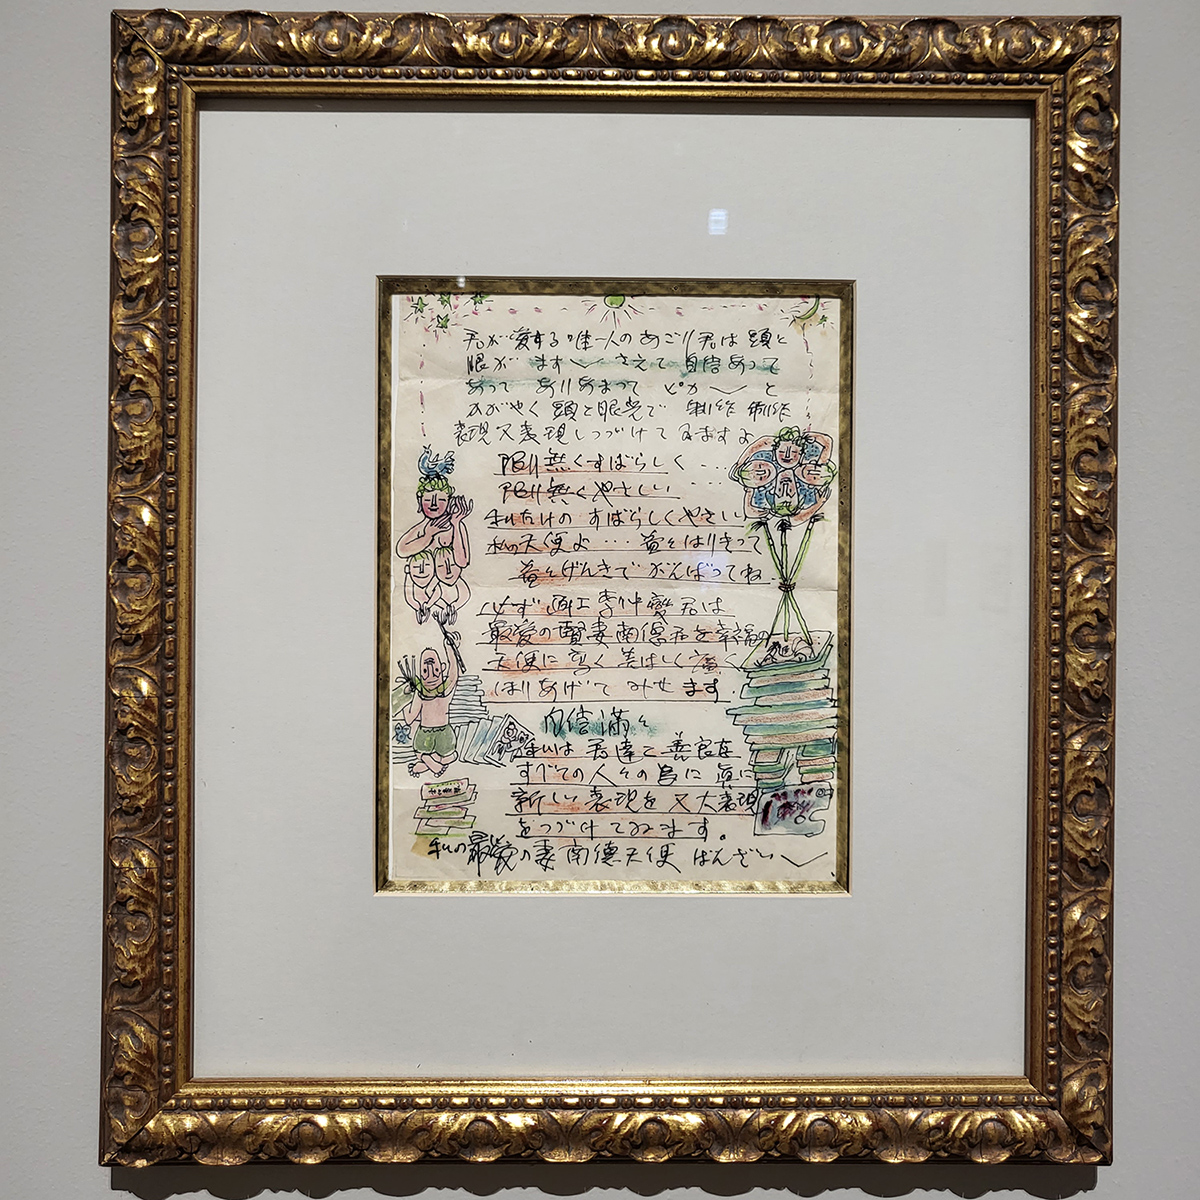 君が愛する唯一人のあごり君は頭と
眼がます〱さえて自信あって
あって ありあまって ピカ〱と
かがやく頭と眼光で 制作 制作
表現又表現しつづけてゐますよ
限り無くすばらしく・・・
限り無くやさしい・・・
私だけの すばらしくやさしい
私の天使よ・・・益々はりきって
益々げんきで がんばってね
必ず 画工李仲燮君は
最愛の賢妻南徳君を幸福の
天使に高く美はしく広く
ほりあげて みせます.
自信満々
私は君達と善良な
すべての人々の為に真に
新しい表現を又大表現
をつづけてゐます。
私の最愛の妻南德天使 ばんざい〱